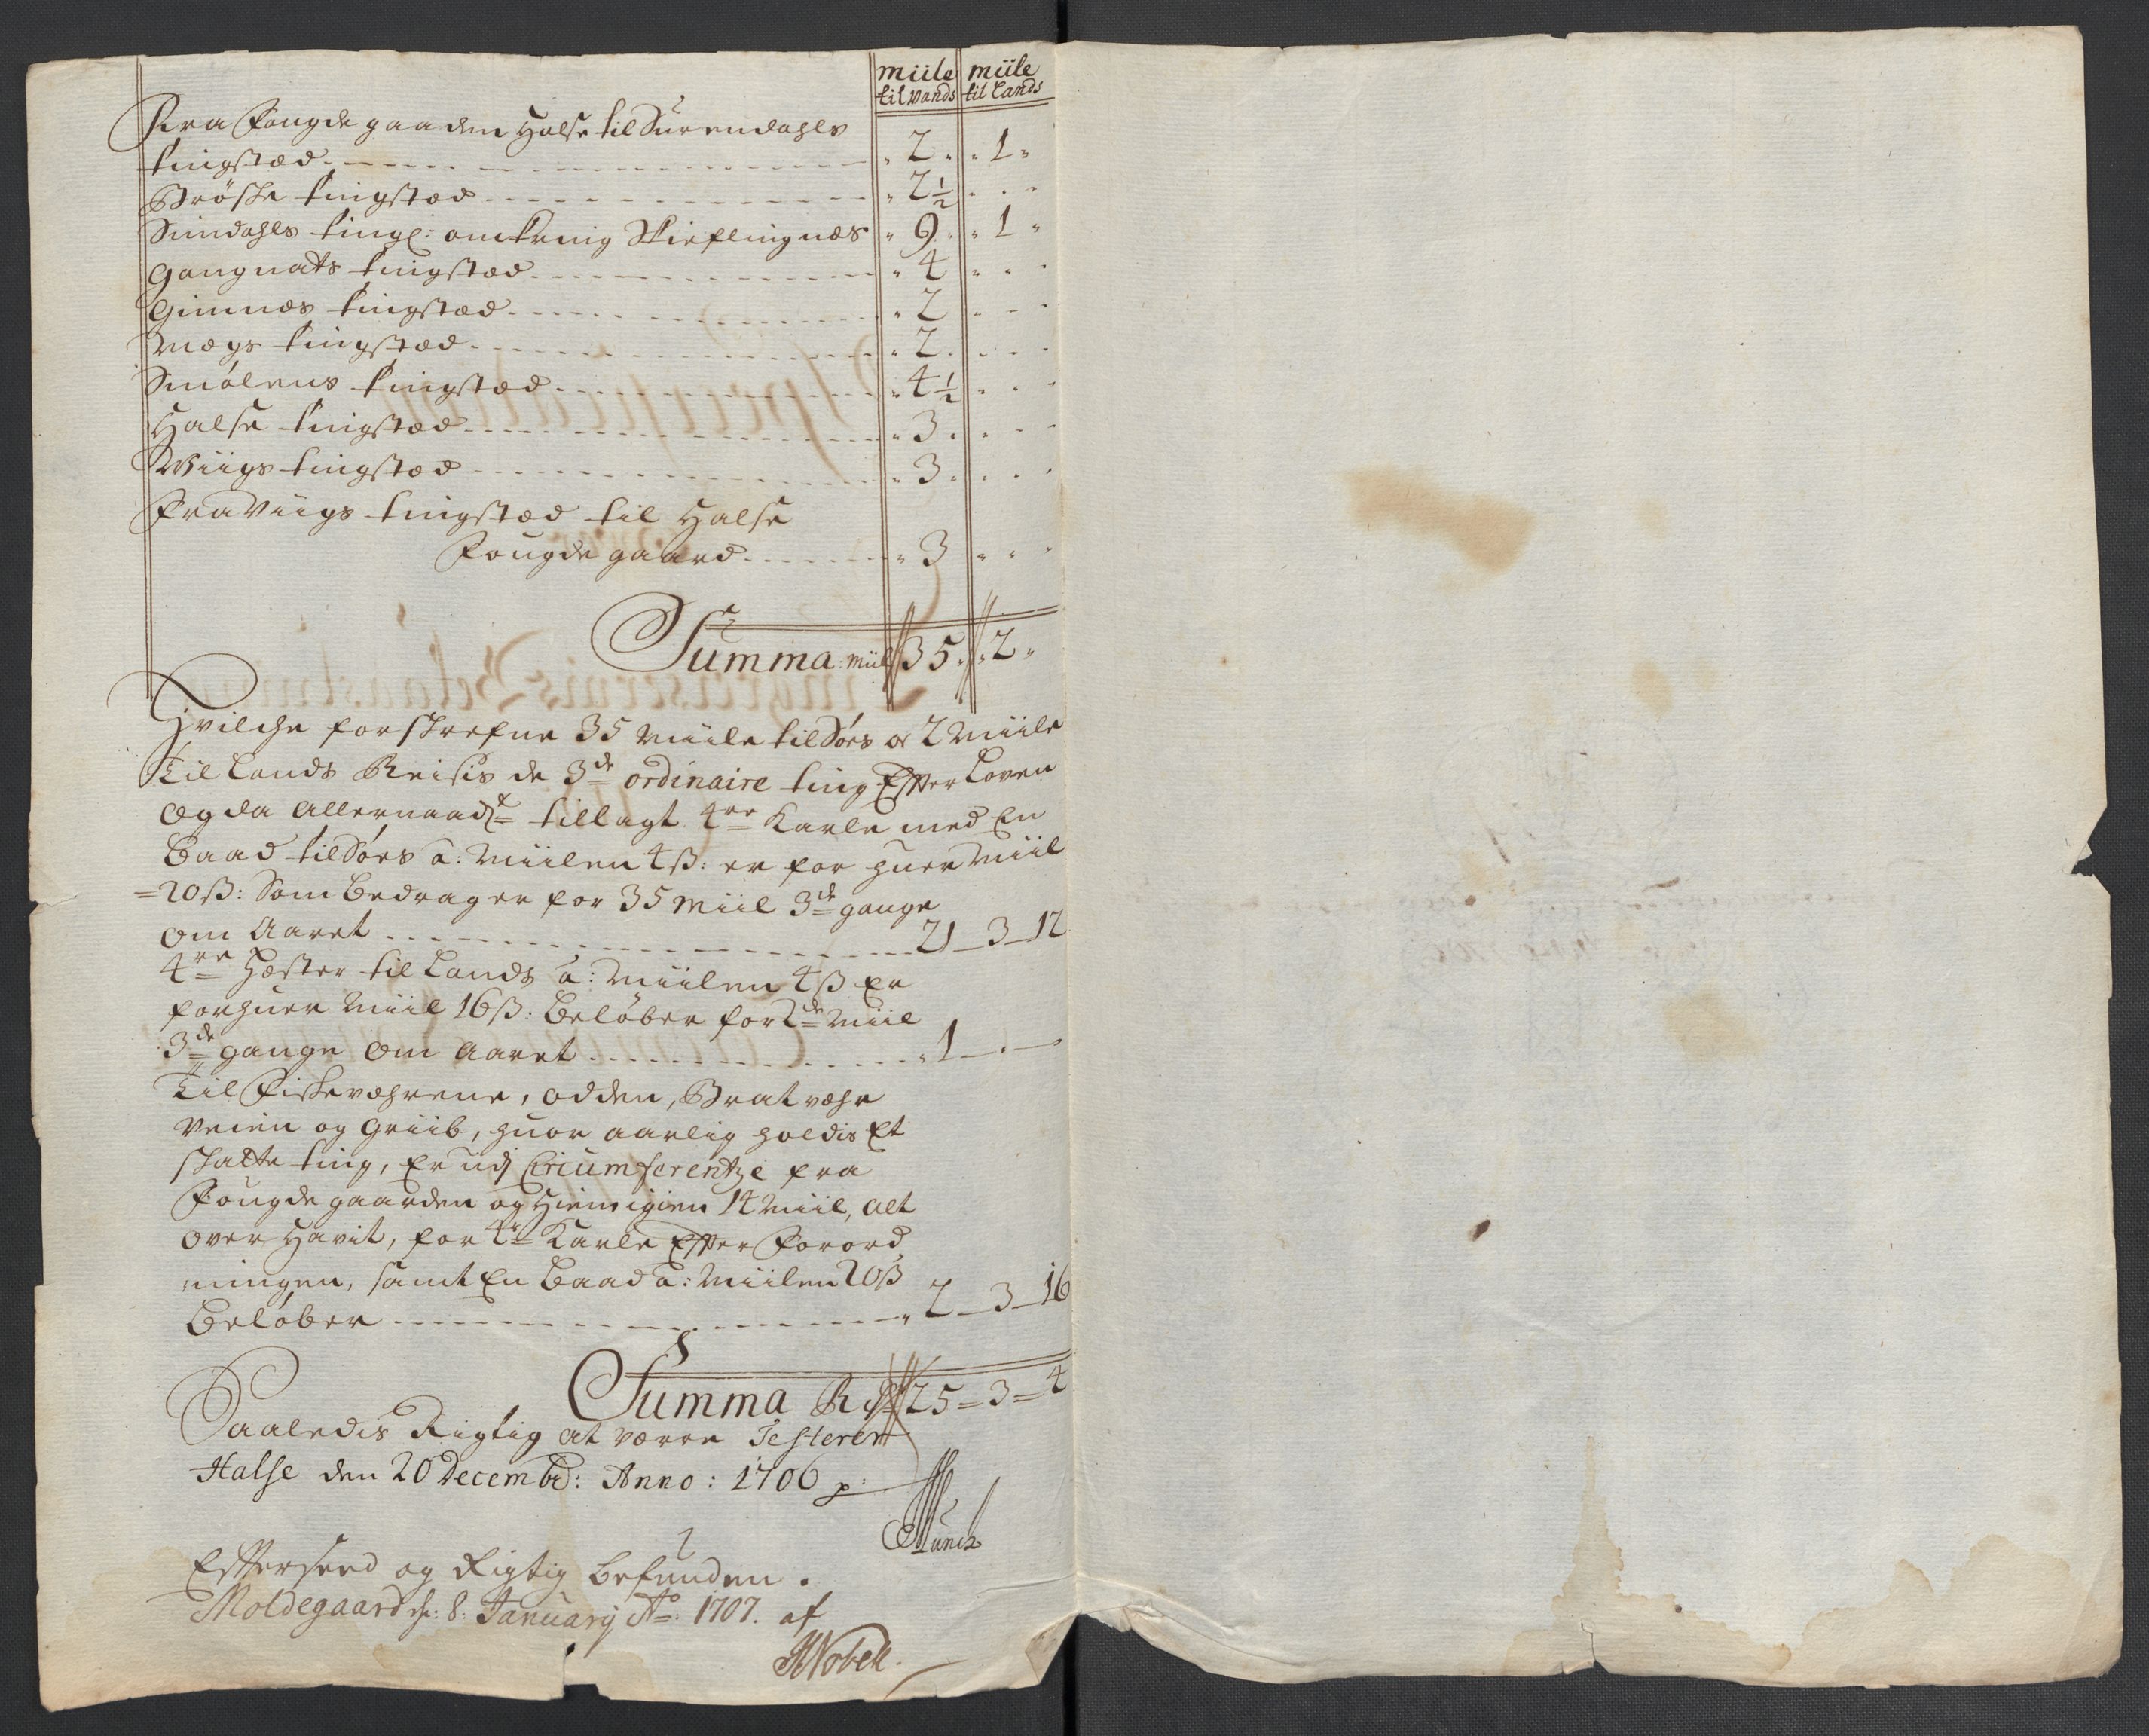 miile miile
til vands til Lands
Fra Fougde gaarden Halse til Surendahls
tingstæd „ 2 „ „ 1 „
Brøske tingstæd „ 2 ½
Sundahls ting: omkring „ 9 „ „ 1 „
Gangnats tingstæd „ 4
Gimnæs tingstæd „ 2
Mægs tingstæd „ 2
Smølens tingstæd „ 4 ½
Halse tingstæd „ 3
Wiigs tingstæd „ 3
Fra Viigs tingstæd til Halse
Fougde gaard „ 3
Summa: miil 35 „ 2 „
Hvilche forskrefne 35 Miile til Søes og 2 Miile
til Lands Reisis de 3de ordinaire ting Effter Loven
Og da Allernaadst tillagt 4re Karle med En
Baad til Søes à: Miilen 4ß: er for huer Miil
=20ß: Som bedrager for 35 Miil 3de gange
om Aaret 21 – 3 – 12
4re Hæster til Lands à: Miilen 4ß Er
for huer Miil 16ß: beløber for 2de Miil
3de gange om Aaret „ 1 – . –
Til Fiskeværene, Odden, Bratvær
Veien og Griib, huor aarlig holdis Et
skatte ting, Er udj Circumferentze fra
Fougde gaarden og Hiem igien 14 Miil, alt
over Havit, for 4re Karle Effter Forord
ningen, samt En Baad à: Miilen 20ß
beløber „ 2 – 3 – 16
Summa Rdr 25 = 3 = 4
Saaledis Rigtig at værre Testerer
Halse den 20 Decembr: Anno: 1706 p:
Munch
Effterseed og Rigtig befunden.
Moldegaard d: 8: January Ao: 1707. af
HNobell.